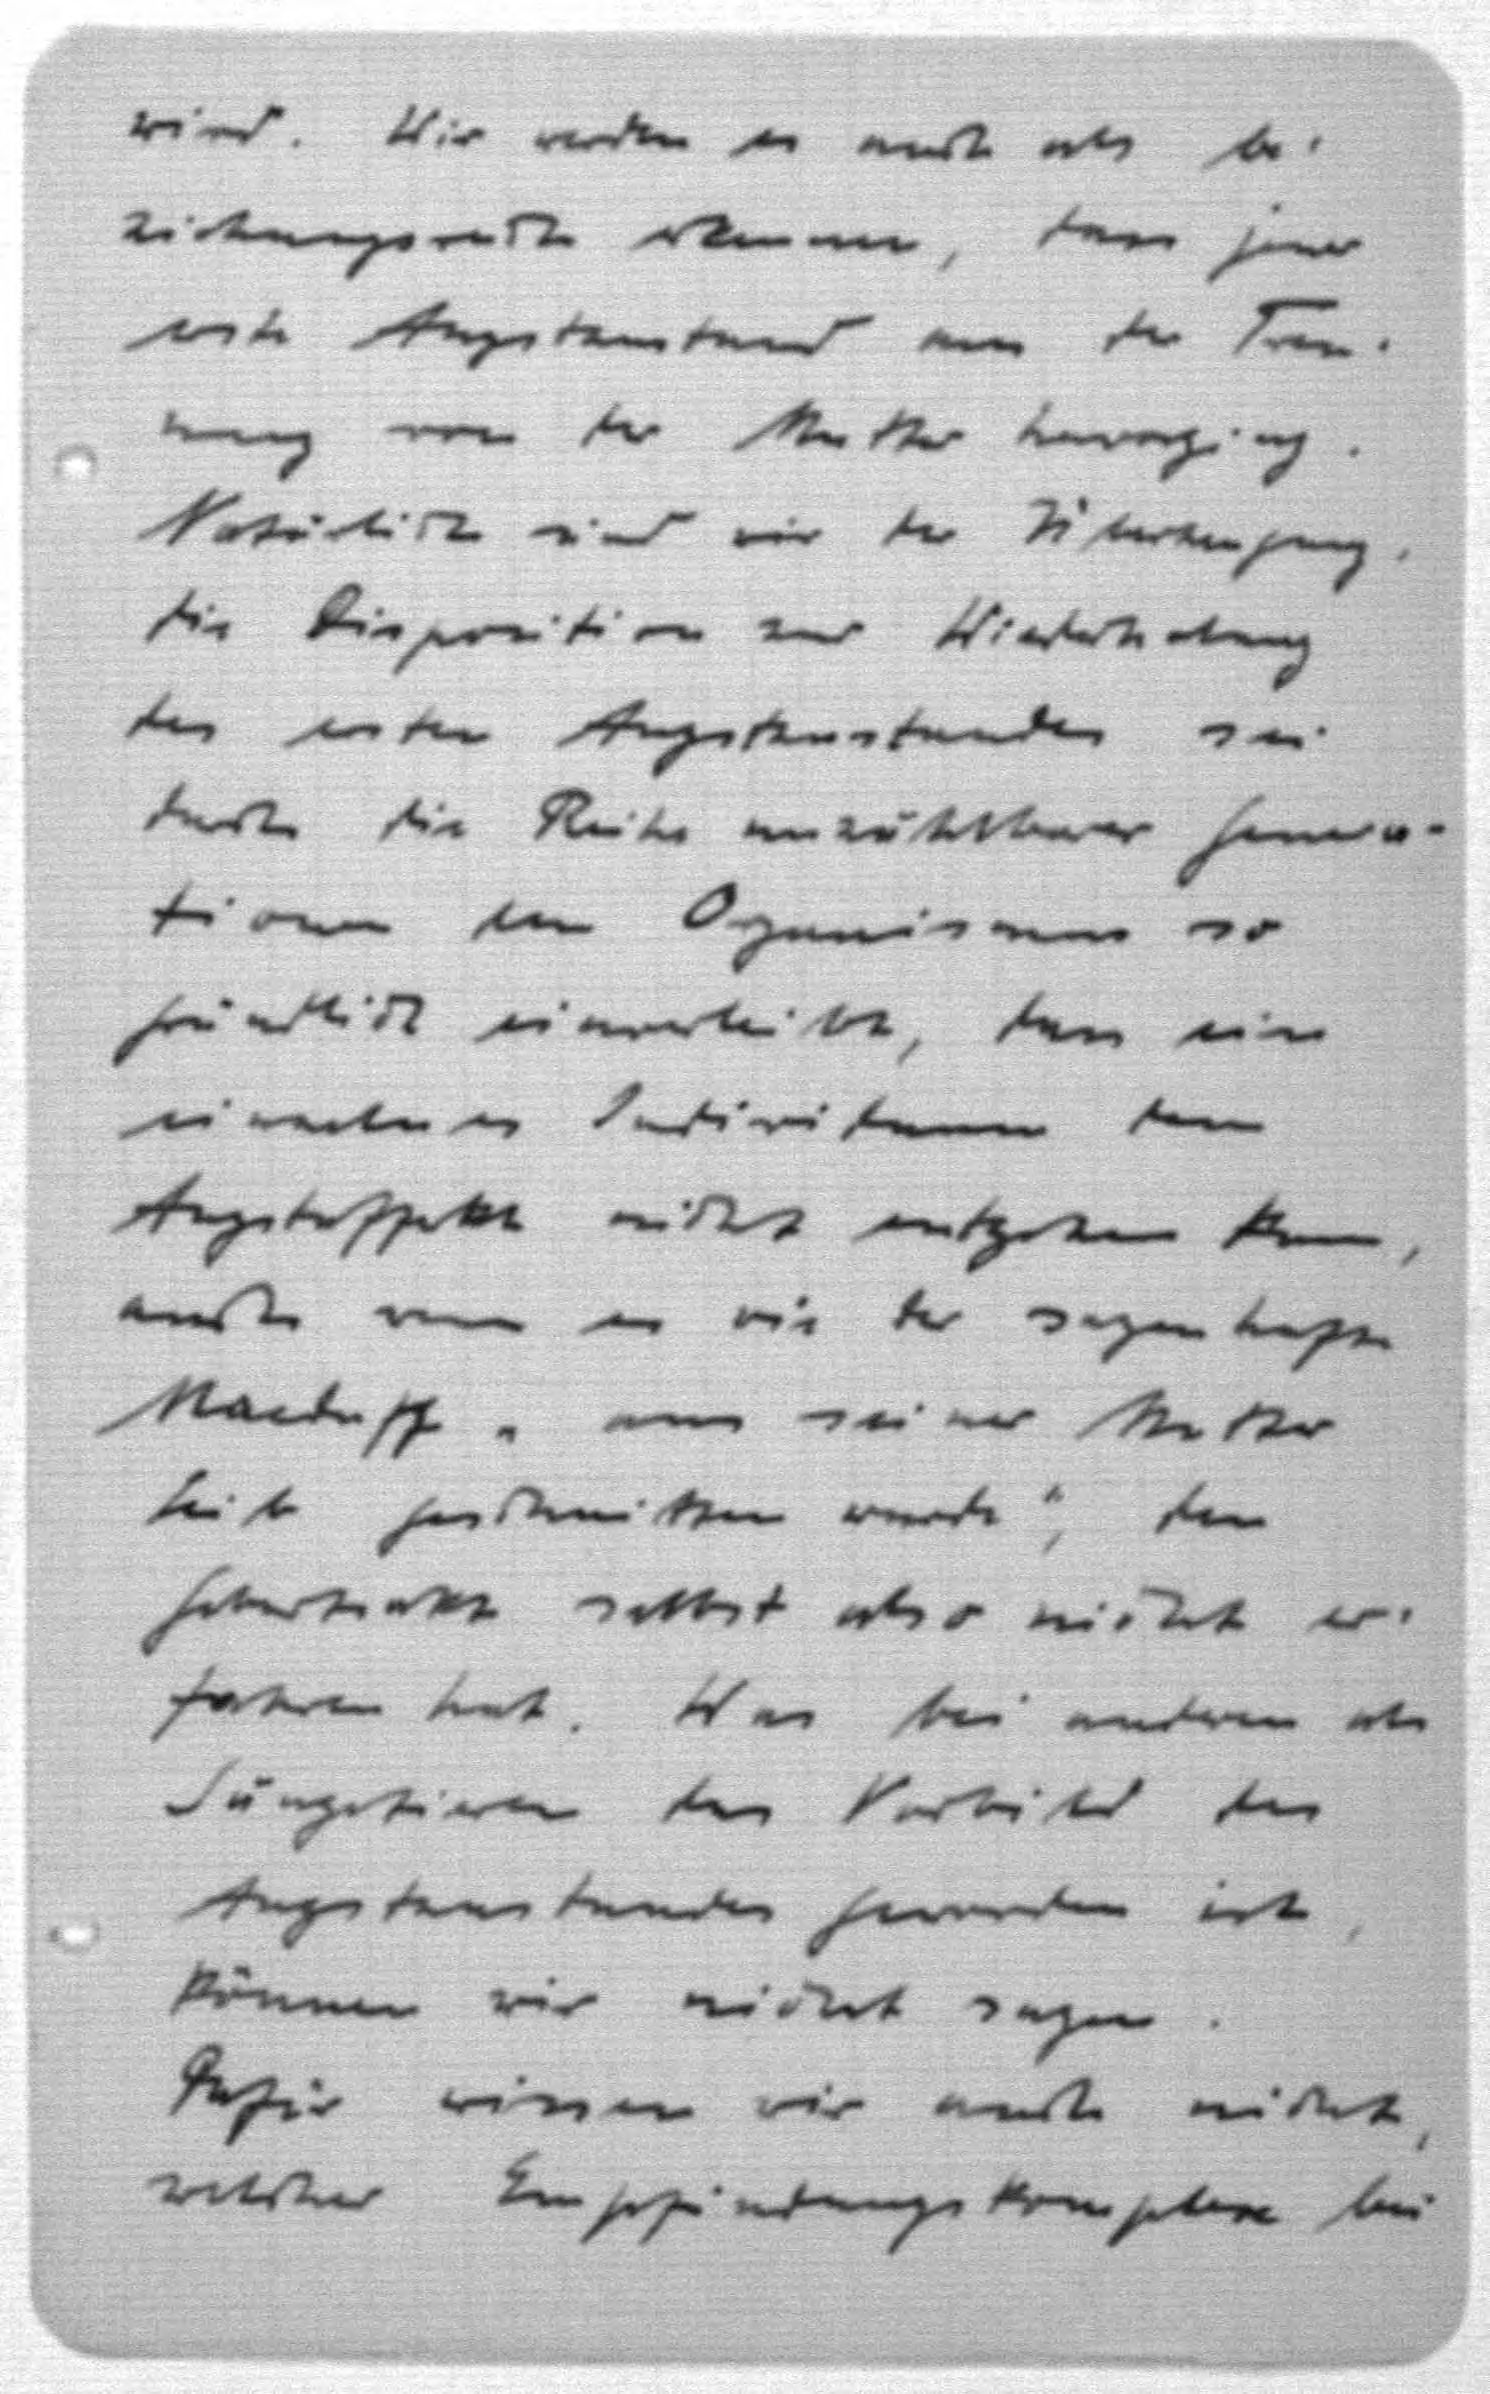 wird. Wir werden es auch als be-
ziehungsreich erkennen, dass jener
erste Angstzustand aus der Tren-
nung von der Mutter hervorging.
Natürlich sind wir der Überzeugung,
die Disposition zur Wiederholung
des ersten Angstzustandes sei
durch die Reihe unzählbarer Genera-
tionen dem Organismus so
gründlich einverleibt, dass ein
einzelnes Individuum dem
Angstaffekt nicht entgehen kann,
auch wenn es wie der sagenhafte
Macduff „aus seiner Mutter
Leib geschnitten wurde“, den
Geburtsakt selbst also nicht er-
fahren hat. Was bei anderen als
Säugetieren das Vorbild des
Angstzustandes geworden ist,
können wir nicht sagen.
Dafür wissen wir auch nicht,
welcher Empfindungskomplex bei